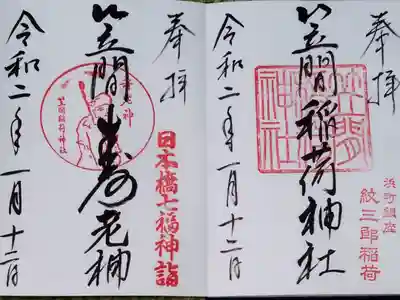 奉拝
浜町銀座
紋三郎稲荷
笠間稲荷神社
笠間稲荷神社
令和二年一月十二日
奉拝
日本橋七福神詣
笠間寿老神
寿老神
笠間稲荷神社
令和二年一月十二日